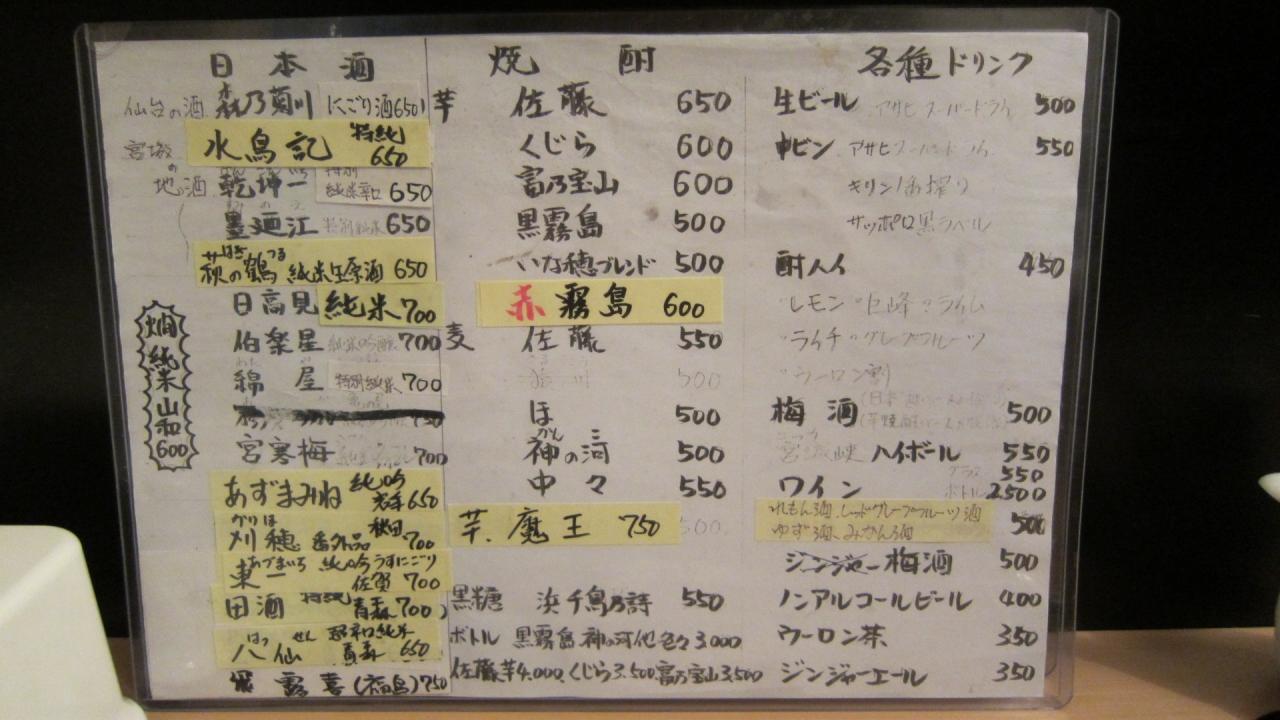 日本酒
仙台の酒 森乃菊川 にごり酒 650
宮城の地の酒
水鳥記 特純 650
乾坤一 特別純米辛口 650
墨廼江 特別純米 650
萩の鶴 はぎ つる 純米生原酒 650
日高見 純米 700
伯楽星 純米吟醸 700
綿屋 特別純米 700
750
宮寒梅 700
燗純米山和600
あずまみね 純吟 岩手 650
かりほ
刈穂 番外品 秋田 700
あづまいち
東一 純吟うすにごり 佐賀 700
田酒 特純 青森 700
はっせん
八仙 超辛口純米 青森 650
飛露喜(福島)750
焼酎
芋 佐藤 650
くじら 600
富乃宝山 600
黒霧島 500
いな穂ブレンド 500
赤霧島 600
麦 佐藤 550
500
ほ 500
かんの
神の河 500
中々 550
芋. 魔王 750
500
黒糖 浜千鳥乃詩 550
ボトル 黒霧島 神の河他色々3,000
佐藤芋4,000、くじら3,500、富乃宝山3,500
各種ドリンク
生ビール アサヒスーパードライ 500
中ビン アサヒスーパードライ 550
キリン一番搾り
サッポロ黒ラベル
酎ハイ 450
〃レモン〃巨峰〃ライム
〃ライチ〃グレープフルーツ
〃ウーロン割
梅酒 500
宮城峡 ハイボール 550
グラス 550
ワイン ボトル 2500
れもん酒、レッドグレープフルーツ酒
ゆず酒、みかん酒 500
ジンジャー梅酒 500
ノンアルコールビール 400
ウーロン茶 350
ジンジャーエール 350